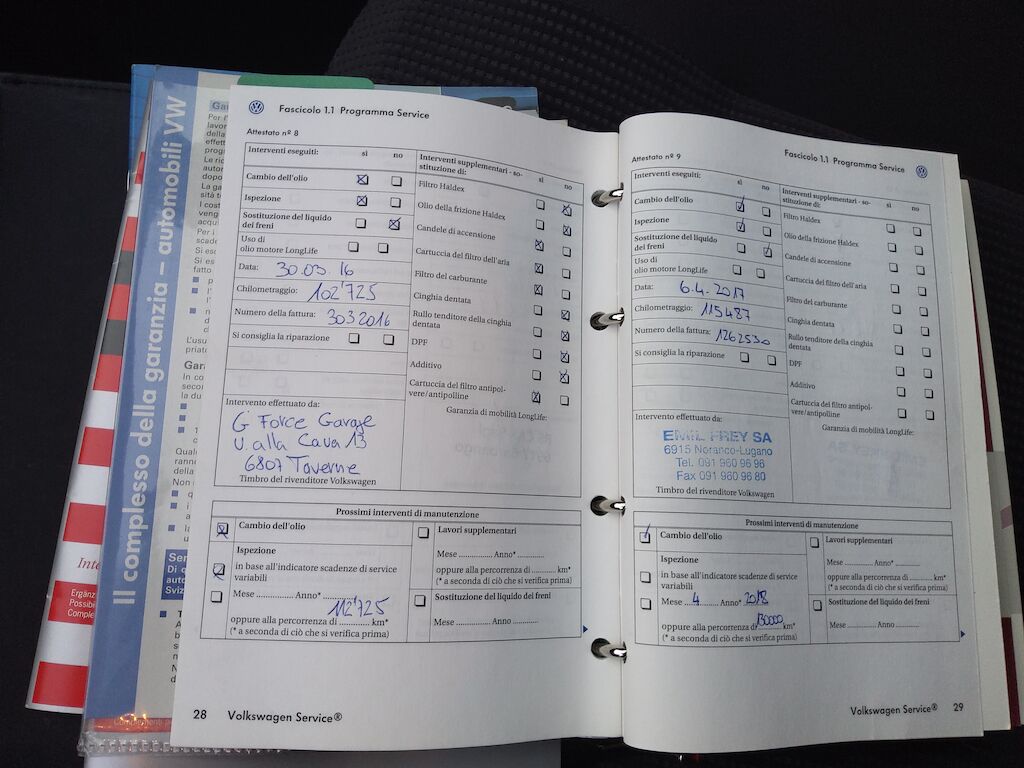 Il complesso della garanzia – automobili VW
Fascicolo 1.1 Programma Service
Attestato nº 8
Interventi eseguiti: sì no
Cambio dell'olio
Ispezione
Sostituzione del liquido
dei freni
Uso di
olio motore LongLife
Data: 30.03.16
Chilometraggio: 102'725
Numero della fattura: 3032016
Si consiglia la riparazione
Intervento effettuato da:
G Force Garage
v. alla Cava 13
6807 Taverne
Timbro del rivenditore Volkswagen
Interventi supplementari - so-
stituzione di: sì no
Filtro Haldex
Olio della frizione Haldex
Candele di accensione
Cartuccia del filtro dell'aria
Filtro del carburante
Cinghia dentata
Rullo tenditore della cinghia
dentata
DPF
Additivo
Cartuccia del filtro antipol-
vere/antipolline
Garanzia di mobilità LongLife:
Prossimi interventi di manutenzione
Cambio dell'olio
Ispezione
in base all'indicatore scadenze di service
variabili
Mese .......... Anno* ..........
oppure alla percorrenza di 112'725 km*
(* a seconda di ciò che si verifica prima)
Lavori supplementari
Mese .......... Anno* ..........
oppure alla percorrenza di .......... km*
(* a seconda di ciò che si verifica prima)
Sostituzione del liquido dei freni
Mese .......... Anno ..........
28 Volkswagen Service®
Fascicolo 1.1 Programma Service
Attestato nº 9
Interventi eseguiti: sì no
Cambio dell'olio
Ispezione
Sostituzione del liquido
dei freni
Uso di
olio motore LongLife
Data: 6.4.2017
Chilometraggio: 115487
Numero della fattura: 1262530
Si consiglia la riparazione
Intervento effettuato da:
EMIL FREY SA
6915 Noranco-Lugano
Tel. 091 960 96 96
Fax 091 960 96 80
Timbro del rivenditore Volkswagen
Interventi supplementari - so-
stituzione di: sì no
Filtro Haldex
Olio della frizione Haldex
Candele di accensione
Cartuccia del filtro dell'aria
Filtro del carburante
Cinghia dentata
Rullo tenditore della cinghia
dentata
DPF
Additivo
Cartuccia del filtro antipol-
vere/antipolline
Garanzia di mobilità LongLife:
Prossimi interventi di manutenzione
Cambio dell'olio
Ispezione
in base all'indicatore scadenze di service
variabili
Mese 4 Anno* 2018
oppure alla percorrenza di 130000 km*
(* a seconda di ciò che si verifica prima)
Lavori supplementari
Mese .......... Anno* ..........
oppure alla percorrenza di .......... km*
(* a seconda di ciò che si verifica prima)
Sostituzione del liquido dei freni
Mese .......... Anno ..........
Volkswagen Service® 29